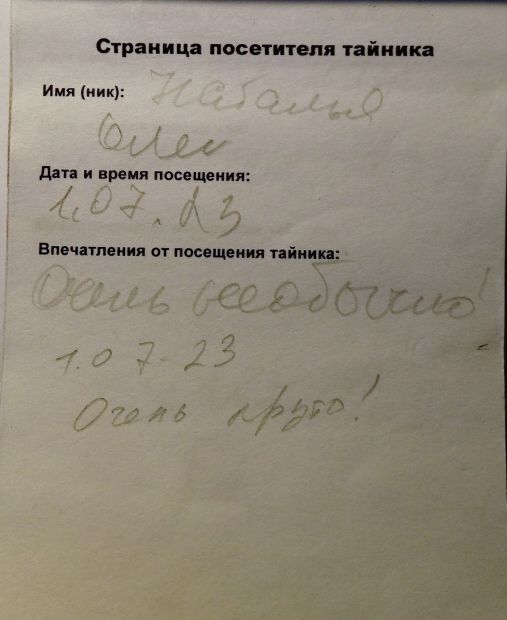 Страница посетителя тайника
Имя (ник): Наталья
Олег
Дата и время посещения:
1.07.23
Впечатления от посещения тайника:
Очень необычно!
1.07-23
Очень круто!